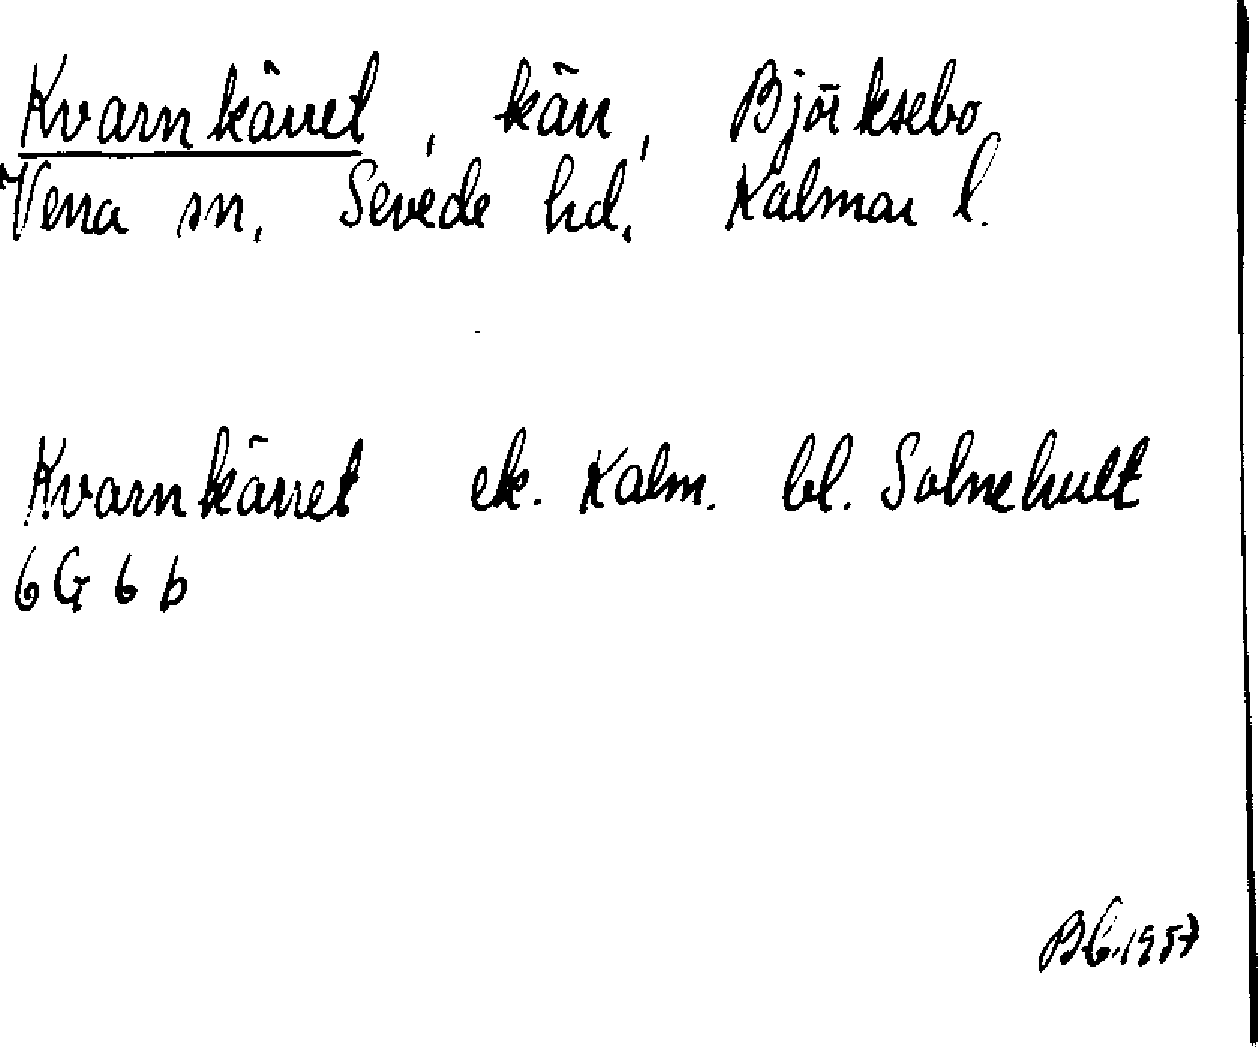 Kvarnkärret, kärr, Björksebo,
Vena sn, Sevede hd, Kalmar l.
Kvarnkärret ek. Kalm. bl. Solnehult
6G 6 b
1957